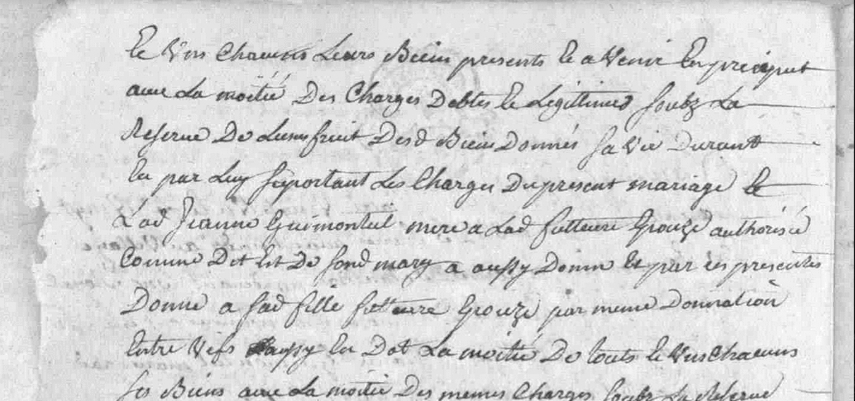 Et Uns Chacuns Leurs Biens presents Et a Venir En preciput
avec La moitié Des Charges Debtes Et Legittimes soubz La
Reserve De Lusufruit Desd Biens Donnés sa Vie Durant
En par Luy suportant Les Charges Du present mariage Et
Lad Jeanne Guimonteil mere a Lad futteure Epouze authorisée
Comme Dit Est De sond mary a aussy Donné Et par ces presentes
Donne a sad fille futteure Epouze par meme Donnation
Entre Vifs aussy En Dot La moitié De touts Et Uns Chacuns
ses Biens avec La moitié Des memes Charges soubz La Reserve